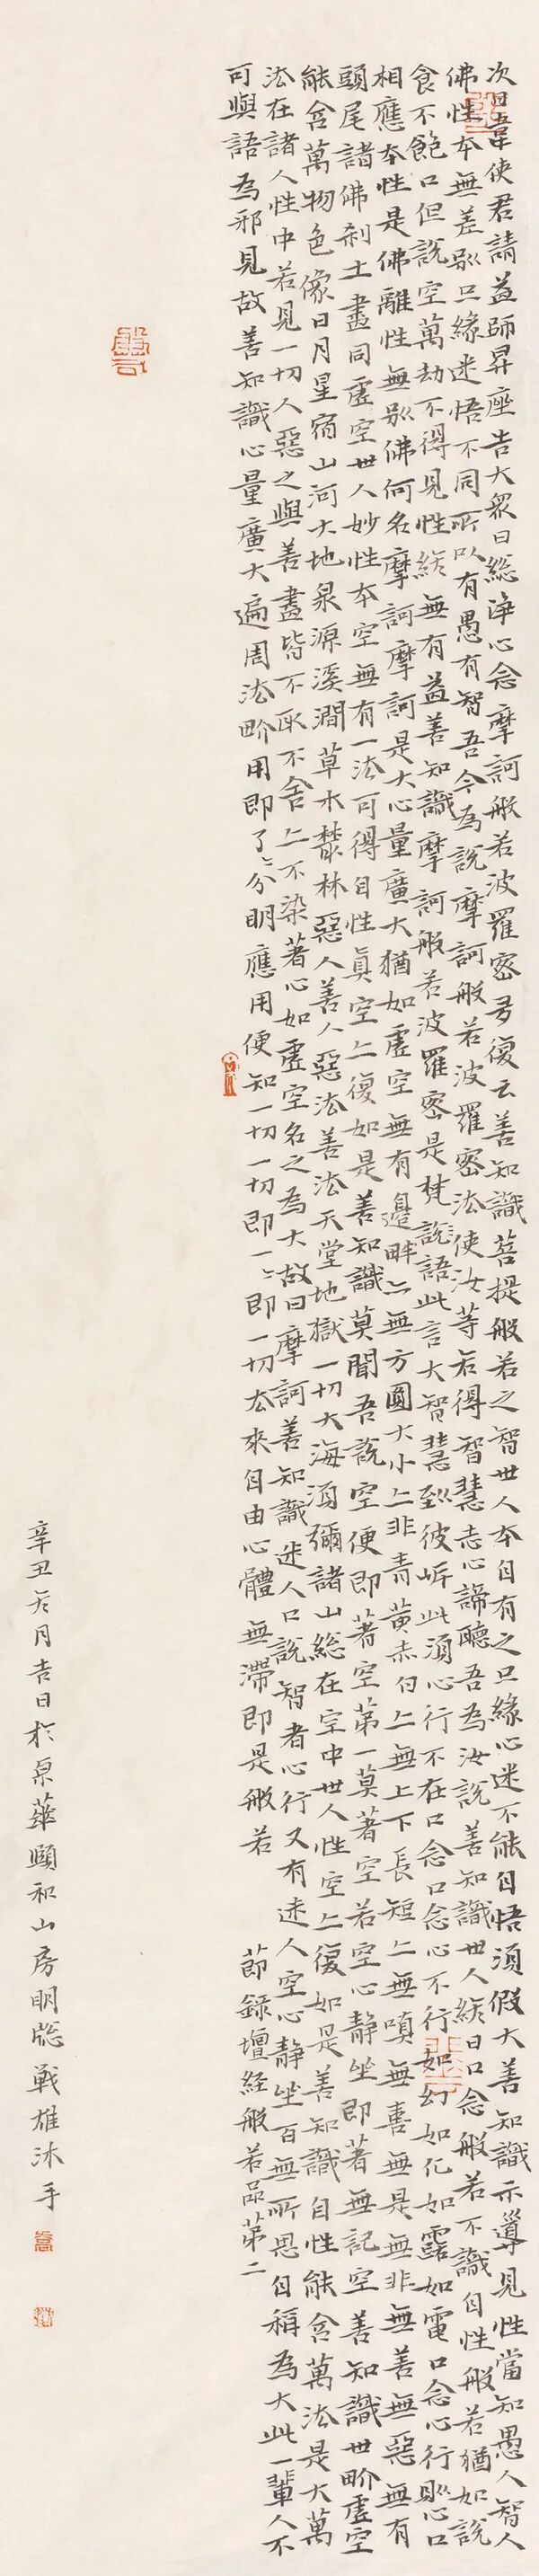 次日韋使君請益師昇座告大眾曰總淨心念摩訶般若波羅密多復云善知識菩提般若之智世人本自有之只緣心迷不能自悟須假大善知識示導見性當知愚人智人
佛性本無差別只緣迷悟不同所以有愚有智吾今為說摩訶般若波羅密法使汝等各得智慧志心諦聽吾為汝說善知識世人終日口念般若不識自性般若猶如說
食不飽口但說空萬劫不得見性終無有益善知識摩訶般若波羅密是梵語此言大智慧到彼岸此須心行不在口念口念心不行如幻如化如露如電口念心行則心口
相應本性是佛離性無別佛何名摩訶摩訶是大心量廣大猶如虛空無有邊畔亦無方圓大小亦非青黃赤白亦無上下長短亦無嗔無喜無是無非無善無惡無有
頭尾諸佛剎土盡同虛空世人妙性本空無有一法可得自性真空亦復如是善知識莫聞吾說空便即著空第一莫著空若空心靜坐即著無記空善知識世界虛空
能含萬物色像日月星宿山河大地泉源溪澗草木叢林惡人善人惡法善法天堂地獄一切大海須彌諸山總在空中世人性空亦復如是善知識自性能含萬法是大萬
法在諸人性中若見一切人惡之與善盡皆不取不舍亦不染著心如虛空名之為大故曰摩訶善知識迷人口說智者心行又有迷人空心靜坐百無所思自稱為大此一輩人不
可與語為邪見故善知識心量廣大遍周法界用即了々分明應用便知一切一切即一々即一切去來自由心體無滯即是般若　節錄壇經般若品第二
辛丑冬月吉日於泉華頤和山房明窗戰雄沐手